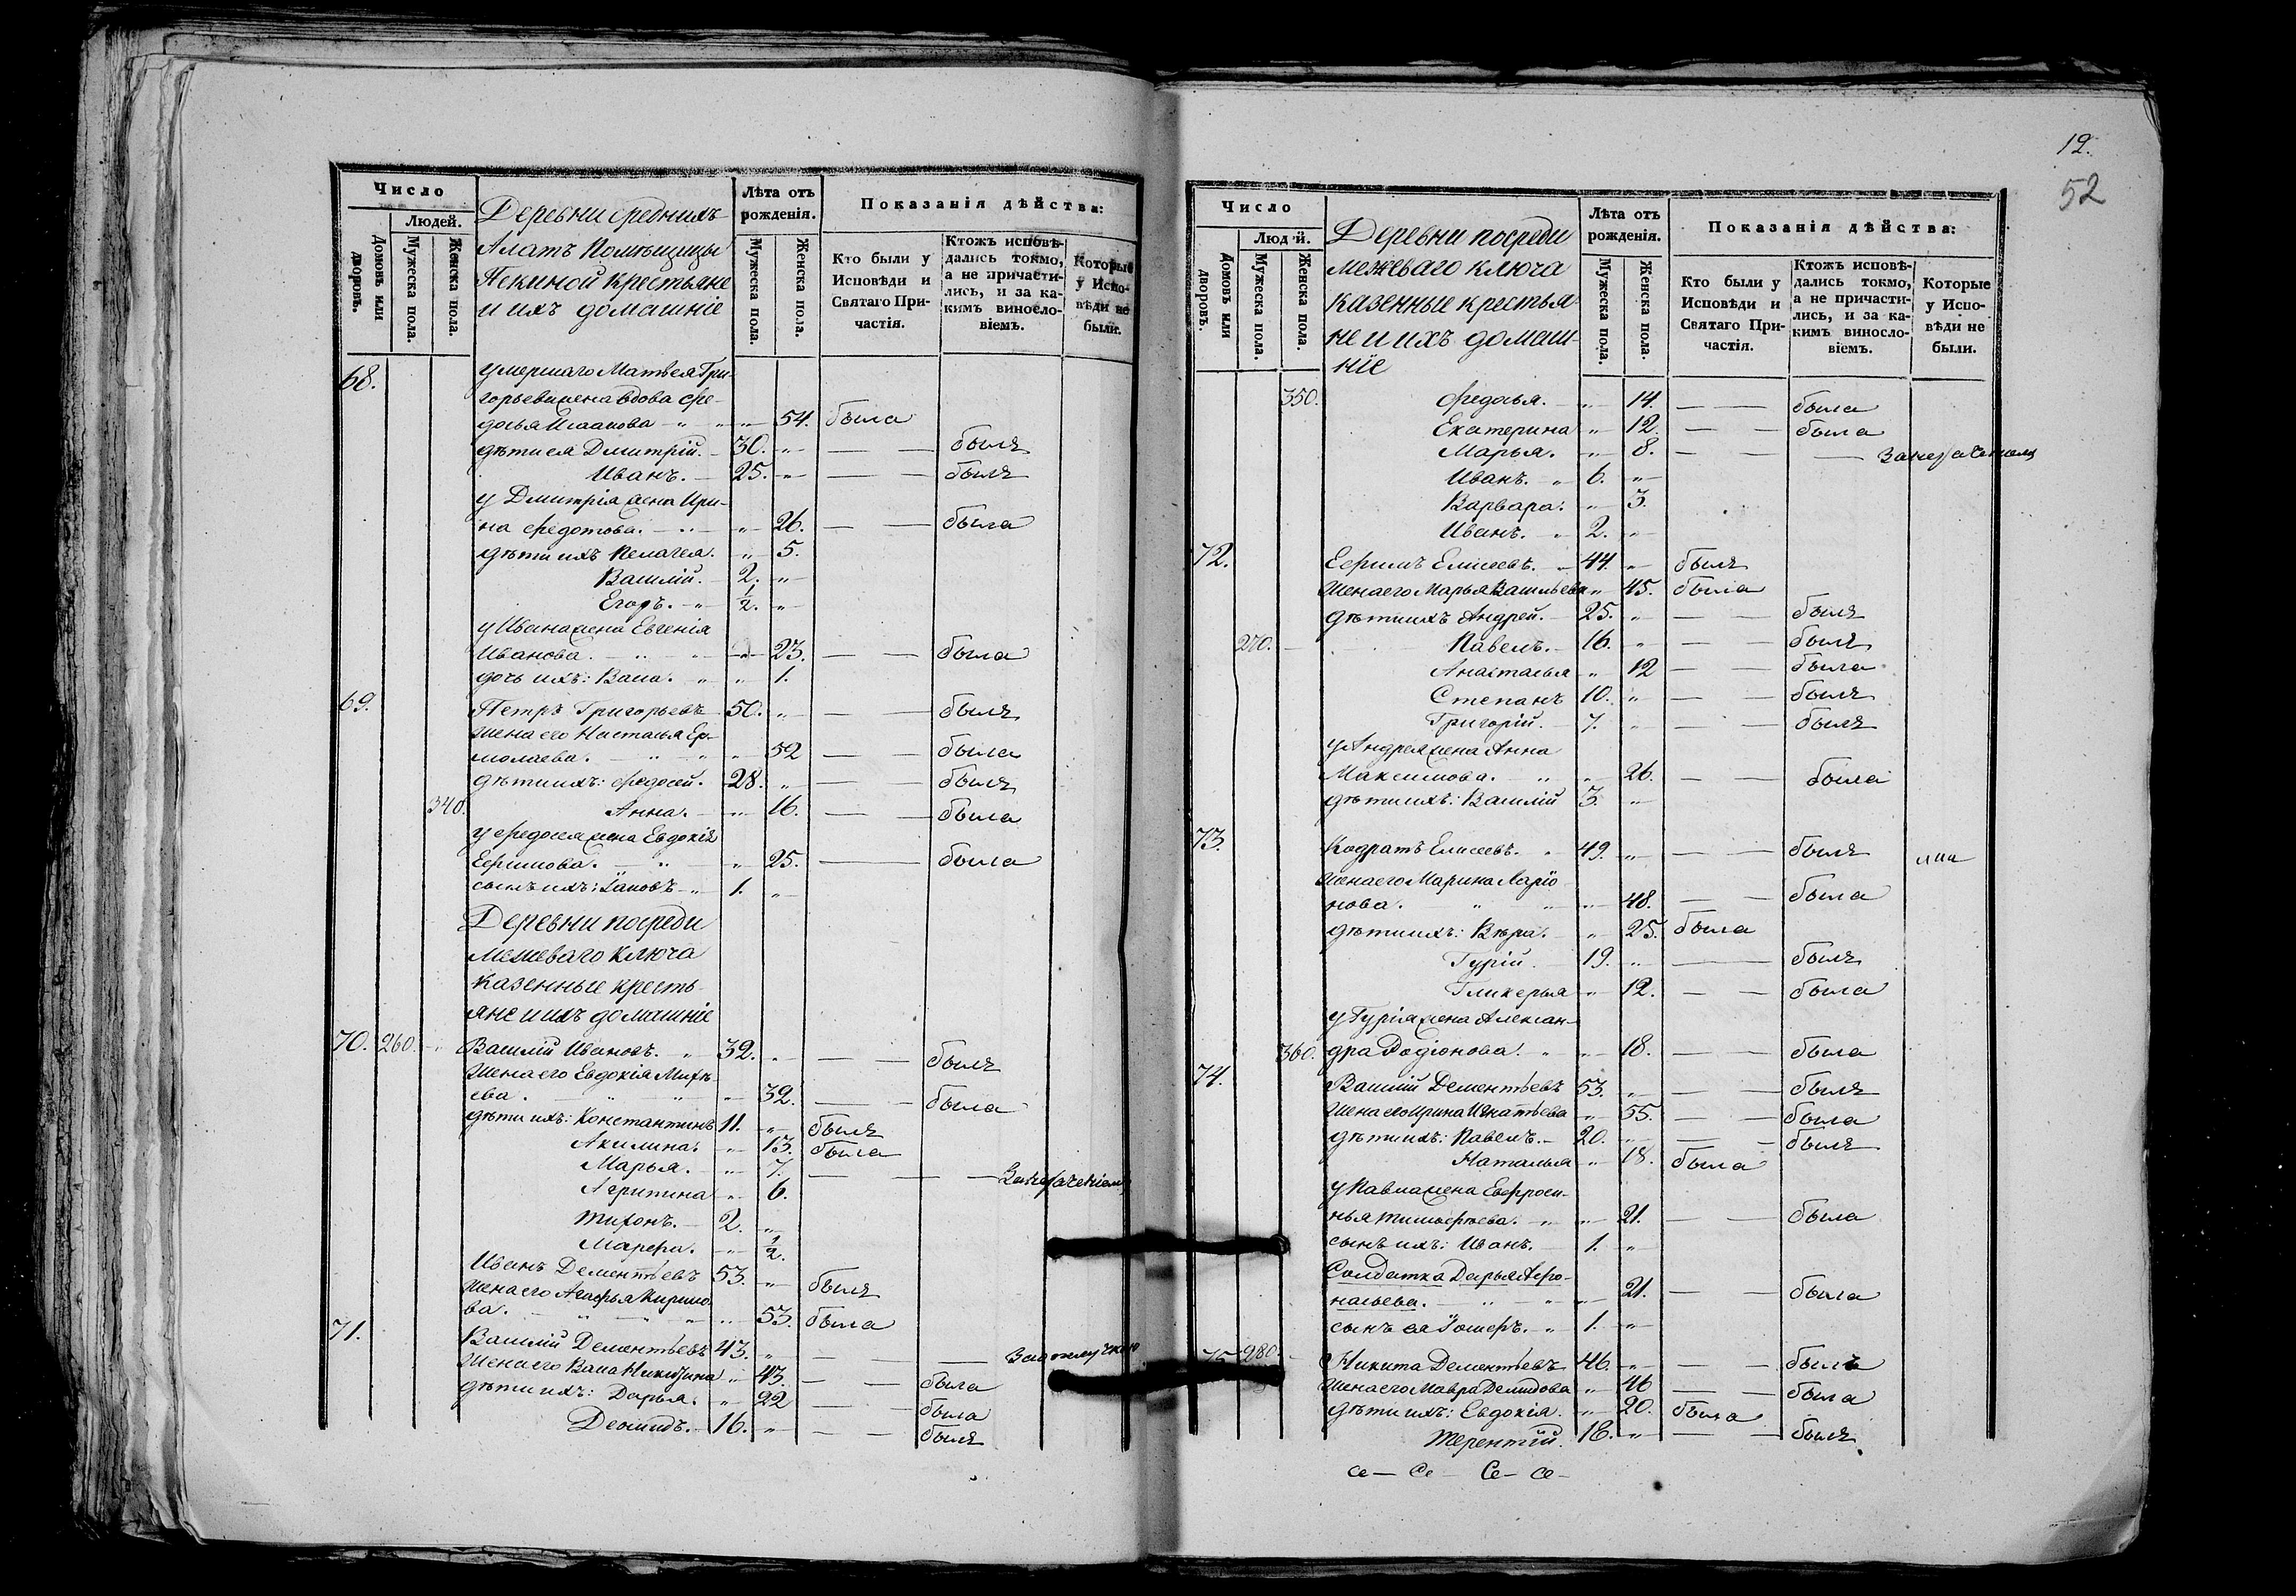 Число
Людей.
Домовъ или дворовъ.
Мужеска пола.
Женска пола.
Деревни среднихъ
Алатъ Помѣщицы
Пекиной крестьяне
и ихъ домашніе
Лѣта отъ рожденія.
Мужеска пола.
Женска пола.
Показанія дѣйства:
Кто были у Исповѣди и Святаго Причастія.
Ктожъ исповѣдались токмо, а не причастились, и за какимъ винословіемъ.
Которые у Исповѣди не были.
68. умершаго Матвея Гри-
горьева жена вдова Ѳе-
досья Исаакова „ 54. была
дѣти ея Дмитрій. 30. „ — — былъ
Иванъ. 25. „ — — былъ
у Дмитрія жена Ири-
на Ѳедотова. „ 26. — — была
дѣти ихъ Пелагея. „ 5.
Василій. 2. „
Егоръ. ½. „
у Ивана жена Евгенія
Иванова. „ 23. — — была
дочь ихъ: Васа. „ 1.
69. Петръ Григорьевъ 50. „ — — былъ
жена его Настасья Ер-
молаева. „ 52 — — была
дѣти ихъ: Ѳедосей. 28. „ — — былъ
340. Анна. „ 16. — — была
у Ѳедосея жена Евдокія
Ефимова. „ 25. — — была
сынъ ихъ: Іаковъ 1. „
Деревни посреди
межеваго ключа
казенные кресть-
яне и ихъ домашніе
70. 260. Василій Ивановъ. 32. „ — — былъ
жена его Евдокія Михѣ-
ева. „ 32. — — была
дѣти ихъ: Константинъ 11. „ былъ
Акилина. „ 13. была
Марья. „ 7. — — —
Агрипина „ 6.
Тихонъ. 2. „
Марфа. „ ½.
Иванъ Дементьевъ 53. „ былъ
жена его Агафья Кирило-
ва. „ 53. была
71. Василій Дементьевъ 43. „ — — —
жена его Васа Никитина „ 43. — — была
дѣти ихъ: Дарья. „ 22 — — была
Деомидъ. 16. „ — — былъ
12.
52
Число
Людей.
Домовъ или дворовъ.
Мужеска пола.
Женска пола.
Деревни посреди
межеваго ключа
казенные крестья-
не и ихъ домаш-
ніе
Лѣта отъ рожденія.
Мужеска пола.
Женска пола.
Показанія дѣйства:
Кто были у Исповѣди и Святаго Причастія.
Ктожъ исповѣдались токмо, а не причастились, и за какимъ винословіемъ.
Которые у Исповѣди не были.
350. Ѳедосья. „ 14. — — была
Екатерина „ 12. — — была
Марья. „ 8. — — —
Иванъ. 6. „
Варвара. „ 3.
Иванъ. 2. „
72. Ефимъ Елисеевъ. 44. „ былъ
жена его Марья Васильева „ 45. была
дѣти ихъ Андрей. 25. „ — — былъ
270. Павелъ. 16. „ — — былъ
Анастасья „ 12 — — была
Степанъ 10. „ — — былъ
Григорій. 7. „ — — былъ
у Андрея жена Анна
Максимова. „ 26. — — была
дѣти ихъ: Василій 3. „
73. Кодратъ Елисеевъ. 49. „ — — былъ
жена его Марина Ларіо-
нова. „ 48. — — была
дѣти ихъ: Вѣра. „ 25. была
Гурій. 19. „ — — былъ
Гликерья „ 12. — — была
у Гурія жена Алексан-
360. дра Родіонова. „ 18. — — была
74. Василій Дементьевъ 53. „ — — былъ
жена его Ирина Игнатьева „ 55. — — была
дѣти ихъ: Павелъ. 20. „ — — былъ
Наталья „ 18. была
у Павла жена Евфроси-
нья Тимофѣева. „ 21. — — была
сынъ ихъ: Иванъ. 1. „
Солдатка Дарья Афо-
насьева. „ 21. — — была
сынъ ея Іосифъ. 1. „
75 280. Никита Дементьевъ 46. „ — — былъ
жена его Мавра Демидова „ 46 — — была
дѣти ихъ: Евдокія. „ 20. была
Терентій. 18. „ — — былъ
се — Се — Се — се —